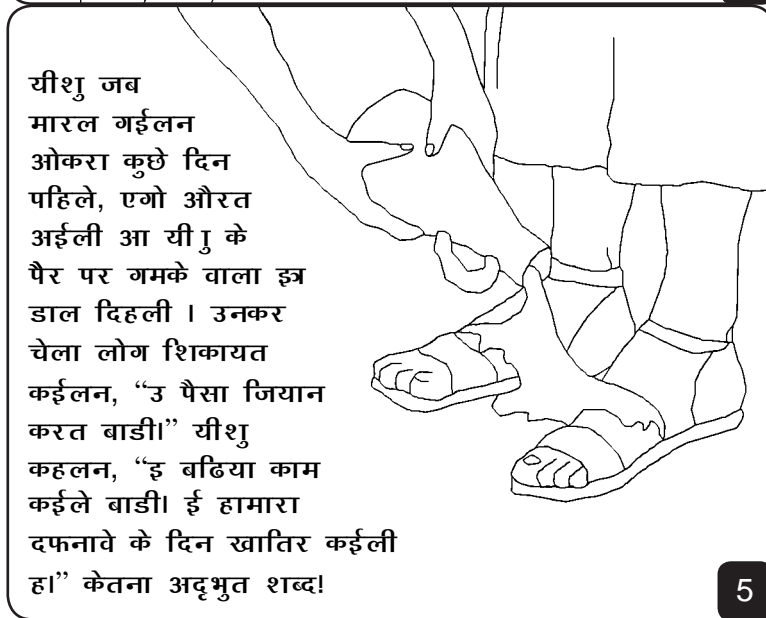 यीशु जब
मारल गईलन
ओकरा कुछे दिन
पहिले, एगो औरत
अईली आ यी ु के
पैर पर गमके वाला इत्र
डाल दिहली । उनकर
चेला लोग शिकायत
कईलन, “उ पैसा जियान
करत बाडी।” यीशु
कहलन, “इ बढिया काम
कईले बाडी। ई हामारा
दफनावे के दिन खातिर कईली
ह।” केतना अदृभुत शब्द!
5